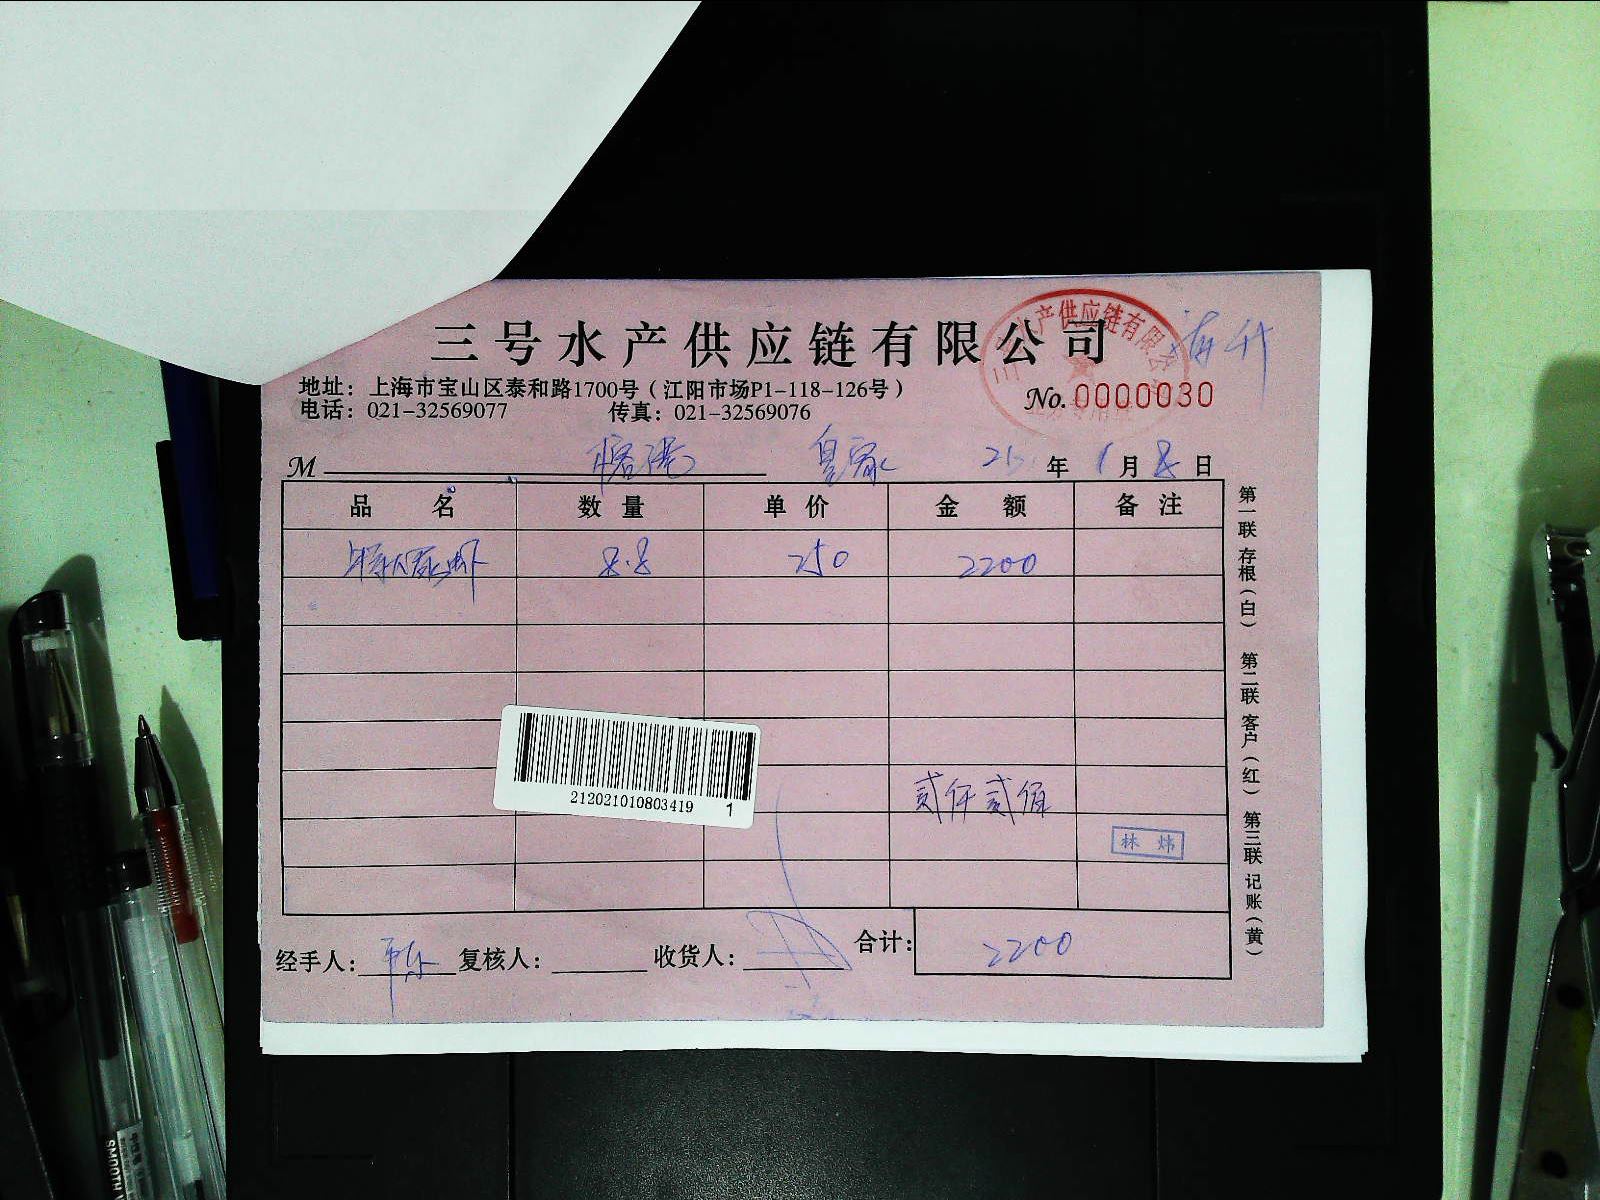 三号水产供应链有限公司
地址：上海市宝山区泰和路1700号（江阳市场P1-118-126号）
电话：021-32569077 传真：021-32569076
三 水产供应链有限公
No.0000030
M 榕港 皇家 25 年 1 月 8 日
品名 数量 单价 金额 备注
8.8 250 2200
212021010803419 1
贰仟贰佰
林炜
经手人： 复核人： 收货人： 合计： 2200
第一联 存根（白） 第二联 客户（红） 第三联 记账（黄）
SMOOTH